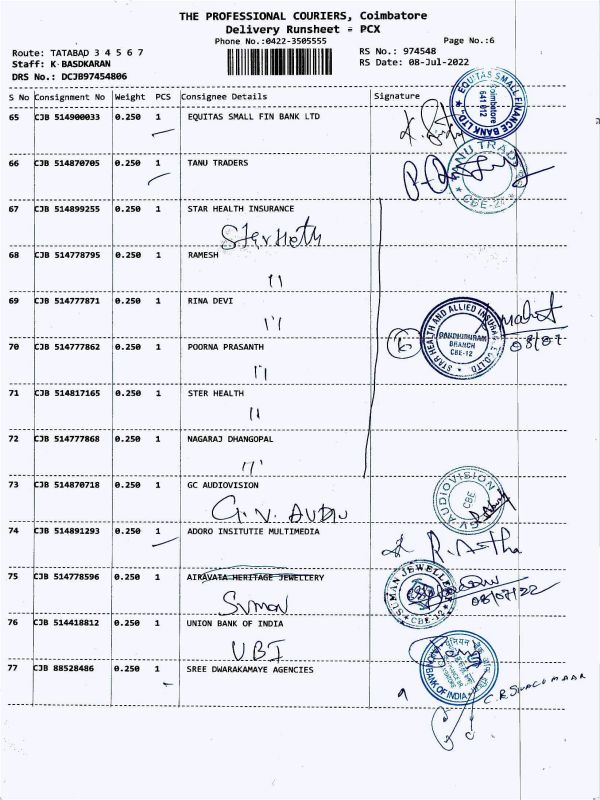 THE PROFESSIONAL COURIERS, Coimbatore
Delivery Runsheet = PCX
Phone No.:0422-3505555
Page No.:6
Route: TATABAD 3 4 5 6 7
RS No.: 974548
Staff: K BASDKARAN
RS Date: 08-Jul-2022
DRS No.: DCJB97454806
S No Consignment No Weight PCS Consignee Details Signature
65 CJB 514900033 0.250 1 EQUITAS SMALL FIN BANK LTD
EQUITAS SMALL FINANCE BANK LTD
Coimbatore 641 012
66 CJB 514870705 0.250 1 TANU TRADERS
CBE-24
67 CJB 514899255 0.250 1 STAR HEALTH INSURANCE
68 CJB 514778795 0.250 1 RAMESH
11
69 CJB 514777871 0.250 1 RINA DEVI
11
STAR HEALTH AND ALLIED INSURANCE CO.LTD
GANDHIPURAM
BRANCH
CBE-12
08/07
70 CJB 514777862 0.250 1 POORNA PRASANTH
11
71 CJB 514817165 0.250 1 STER HEALTH
11
72 CJB 514777868 0.250 1 NAGARAJ DHANGOPAL
11
73 CJB 514870718 0.250 1 GC AUDIOVISION
G.V. AUDIO
G.V. AUDIOVISION
CBE
74 CJB 514891293 0.250 1 ADORO INSITUTIE MULTIMEDIA
75 CJB 514778596 0.250 1 AIRAVATA HERITAGE JEWELLERY
Sumon
SUMAN JEWELLERS
CBE-12
08/07/22
76 CJB 514418812 0.250 1 UNION BANK OF INDIA
UBI
BANK OF INDIA
77 CJB 88528486 0.250 1 SREE DWARAKAMAYE AGENCIES
C.R SIVACUMAAR